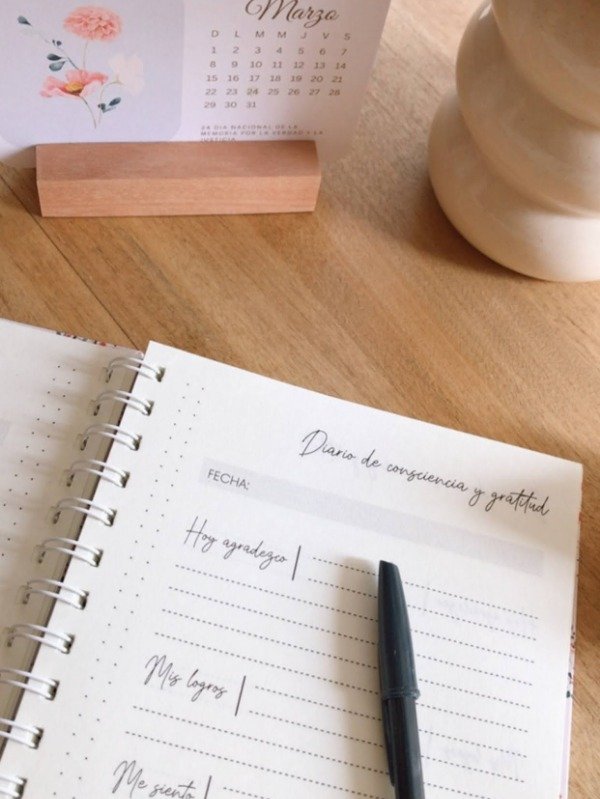 Marzo
D L M M J V S
1 2 3 4 5 6 7
8 9 10 11 12 13 14
15 16 17 18 19 20 21
22 23 24 25 26 27 28
29 30 31
24 DIA NACIONAL DE LA
MEMORIA POR LA VERDAD Y LA
JUSTICIA
Diario de consciencia y gratitud
FECHA:
Hoy agradezco
Mis logros
Me siento